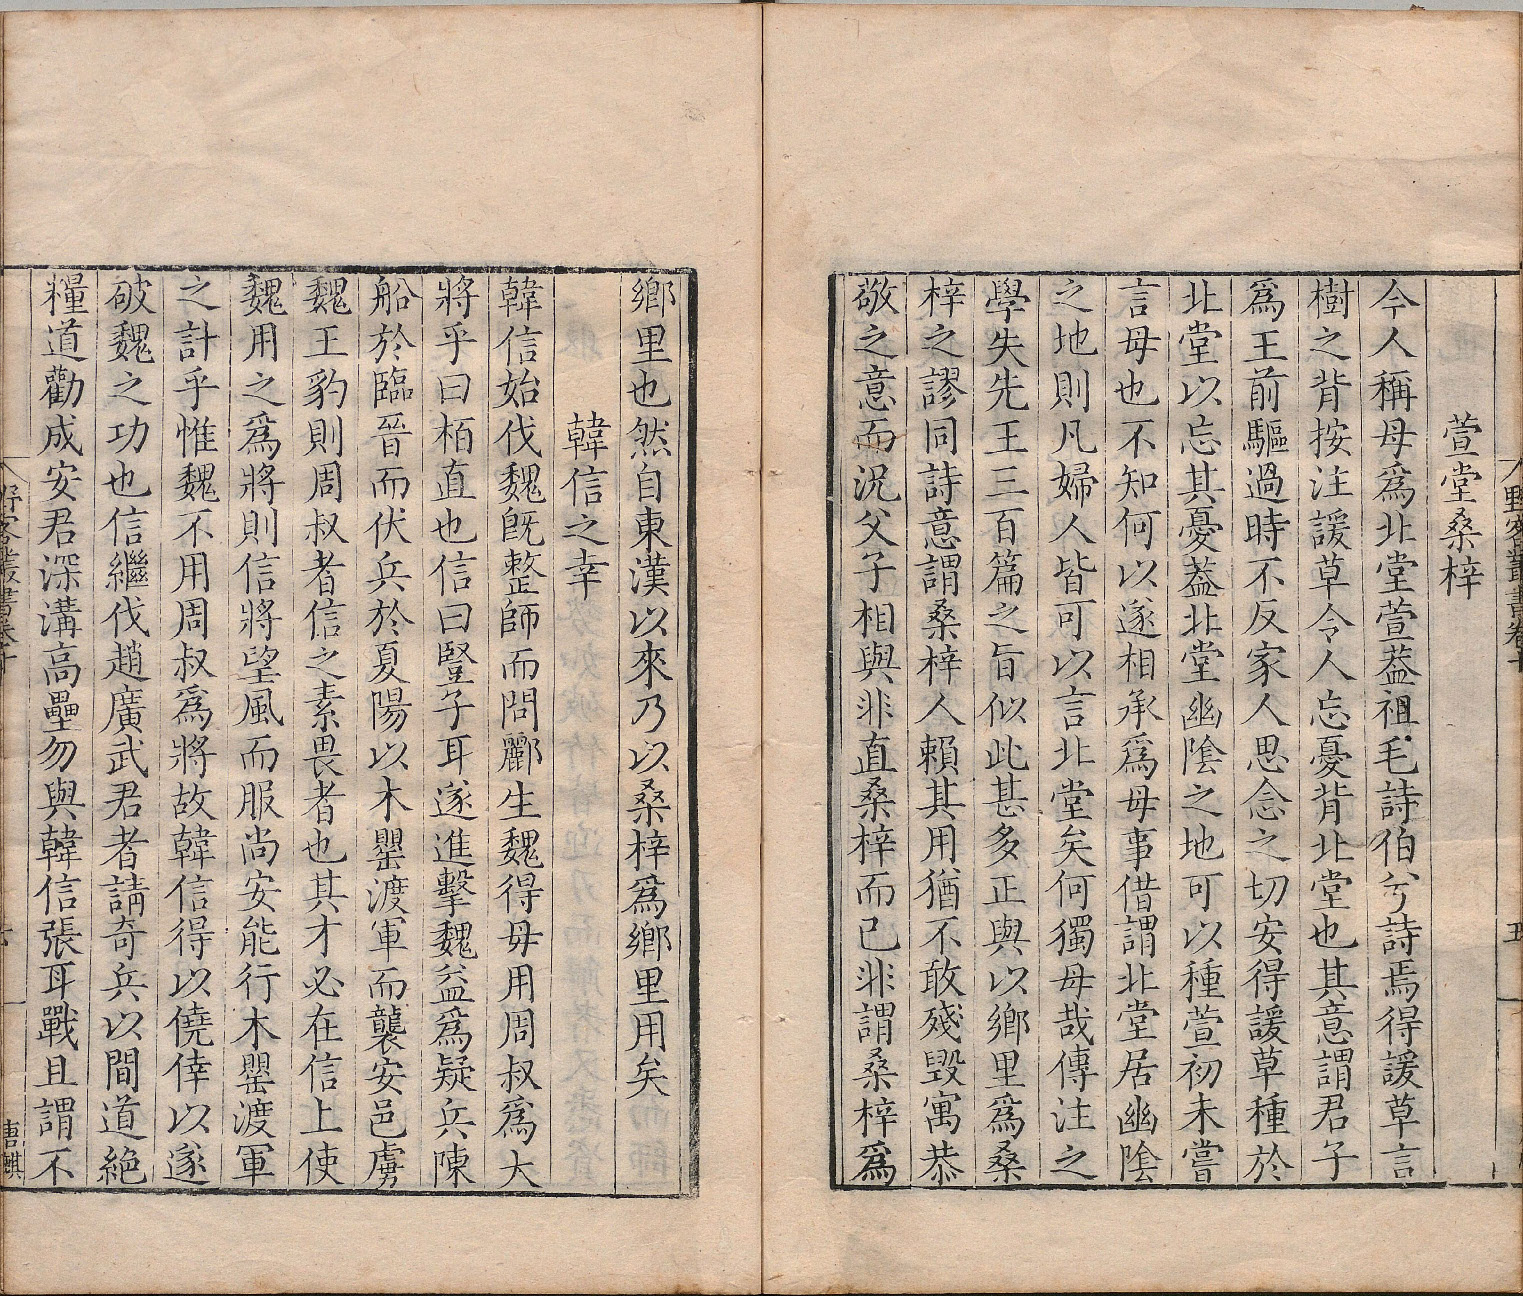 野客叢書卷十
五
萱堂桑梓
今人稱母爲北堂萱葢祖毛詩伯兮詩焉得諼草言
樹之背按注諼草令人忘憂背北堂也其意謂君子
爲王前驅過時不反家人思念之切安得諼草種於
北堂以忘其憂葢北堂幽陰之地可以種萱初未嘗
言母也不知何以遂相承爲母事借謂北堂居幽陰
之地則凡婦人皆可以言北堂矣何獨母哉傳注之
學失先王三百篇之旨似此甚多正與以鄉里爲桑
梓之謬同詩意謂桑梓人賴其用猶不敢殘毀寓恭
敬之意而況父子相與非直桑梓而已非謂桑梓爲
鄉里也然自東漢以來乃以桑梓爲鄉里用矣
韓信之幸
韓信始伐魏旣整師而問酈生魏得毋用周叔爲大
將乎曰栢直也信曰豎子耳遂進擊魏益爲疑兵陳
船於臨晉而伏兵於夏陽以木罌渡軍而襲安邑虜
魏王豹則周叔者信之素畏者也其才必在信上使
魏用之爲將則信將望風而服尚安能行木罌渡軍
之計乎惟魏不用周叔爲將故韓信得以僥倖以遂
破魏之功也信繼伐趙廣武君者請奇兵以間道絕
糧道勸成安君深溝高壘勿與韓信張耳戰且謂不
野客叢書卷十
唐麒